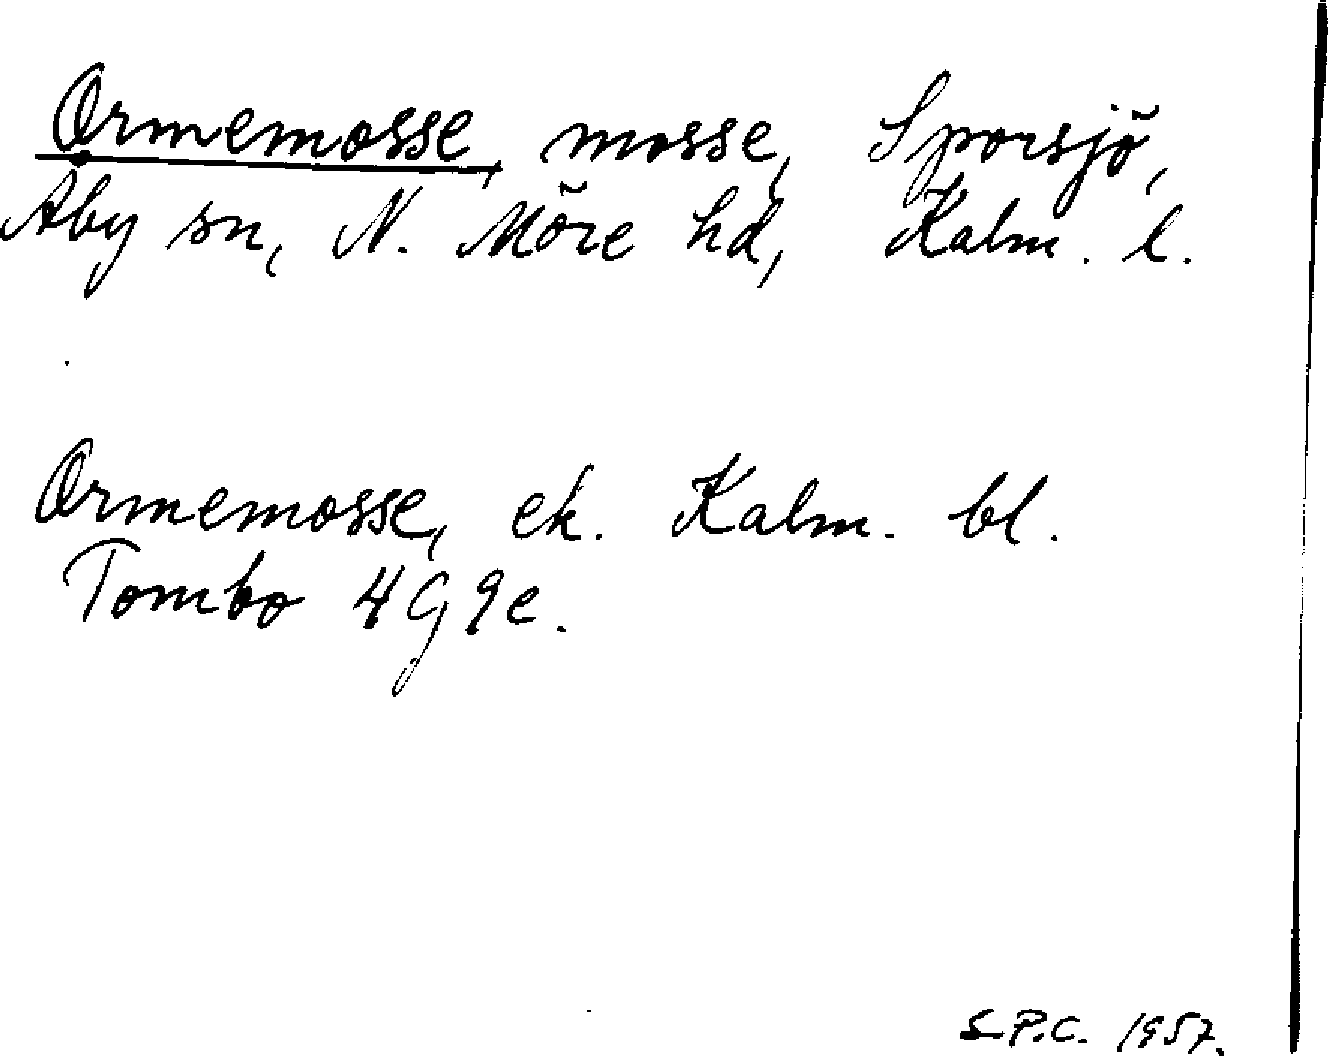 Ormemosse, mosse, Sporsjö,
Åby sn, N. Möre hd, Kalm. l.
Ormemosse, ek. Kalm. bl.
Tombo 4G9e.
S.P.C. 1957.